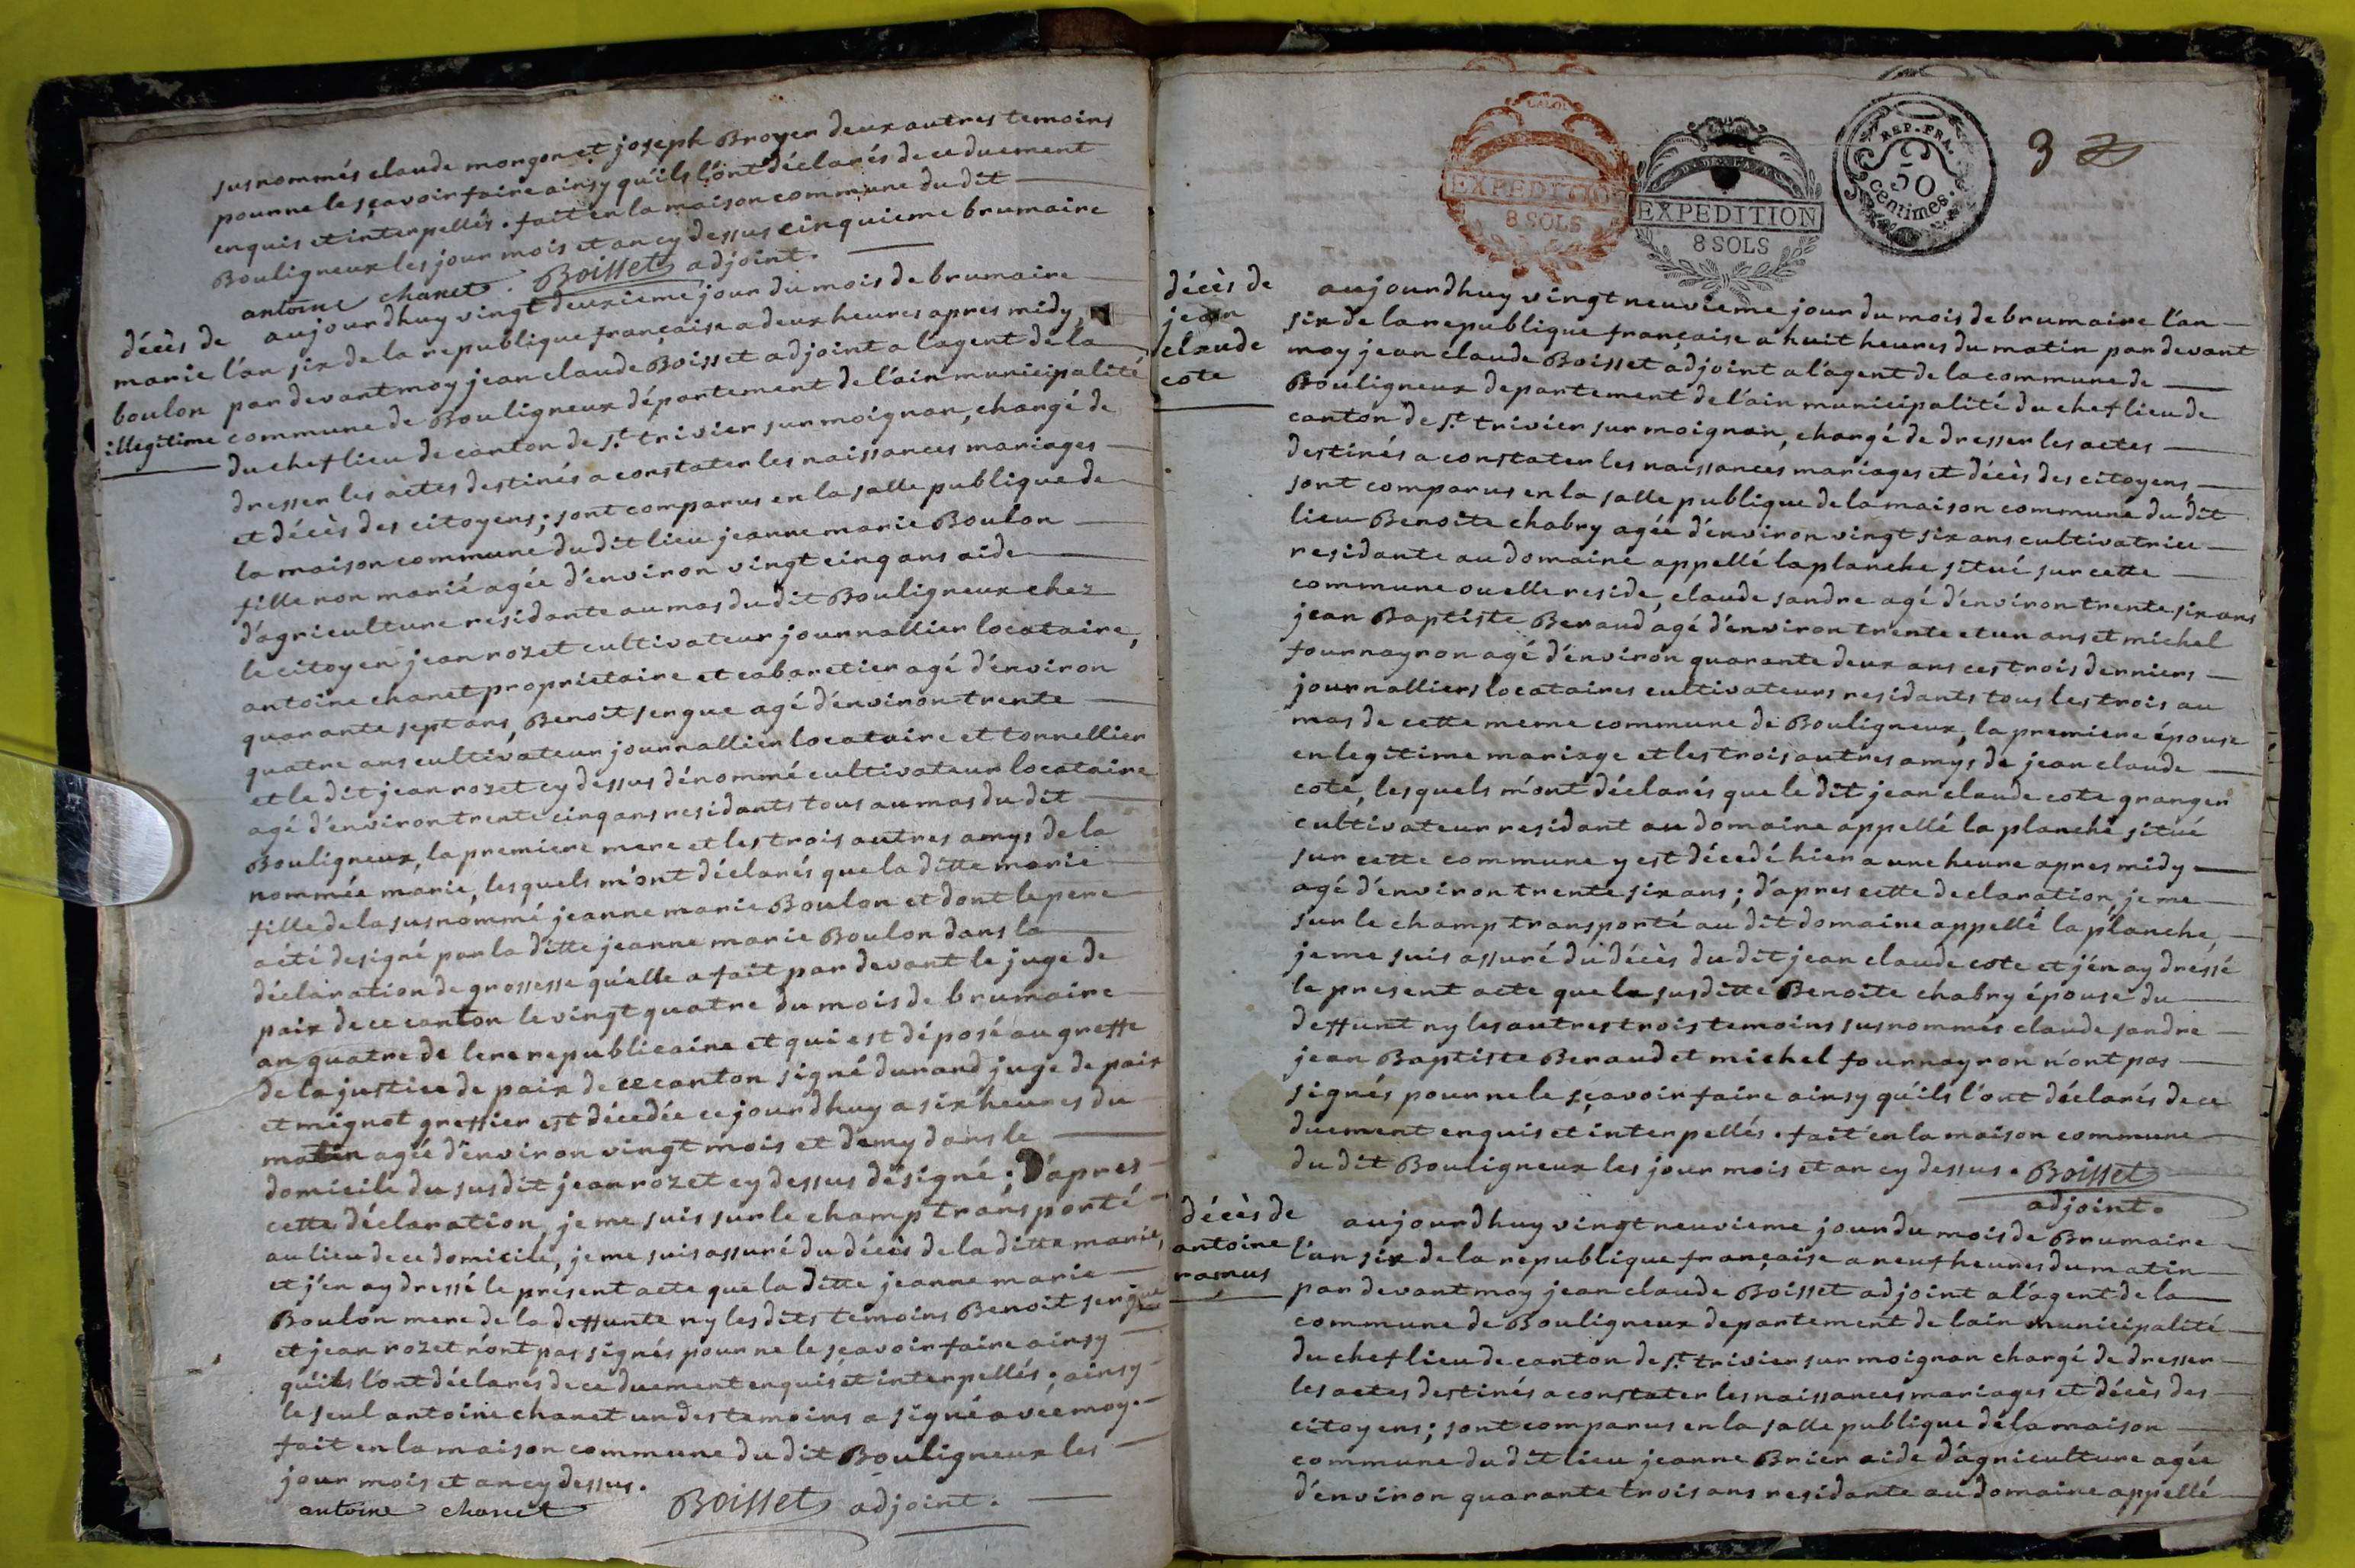 susnommés claude morgon et joseph Broyer deux autres temoins
pour ne le sçavoir faire ainsy qu'ils l'ont déclarés de ce duement
enquis et interpellés. fait en la maison commune du dit
Bouligneux les jour mois et an cy dessus cinquieme brumaire
antoine chanet. Boisset adjoint.
décès de
marie
boulon
illegitime
aujourdhuy vingt deuxieme jour du mois de brumaire
l'an six de la republique française a deux heures apres midy,
par devant moy jean claude Boisset adjoint a lagent de la
commune de Bouligneux département de l'ain municipalité
du chef lieu de canton de st. trivier sur moignan, chargé de
dresser les actes destinés a constater les naissances mariages
et décès des citoyens; sont comparus en la salle publique de
la maison commune du dit lieu jeanne marie Boulon
fille non marié agée d'environ vingt cinq ans aide
d'agriculture residante au mas du dit Bouligneux chez
le citoyen jean rozet cultivateur journallier locataire,
antoine chanet proprietaire et cabaretier agé d'environ
quarante sept ans, Benoit sergue agé d'environ trente
quatre ans cultivateur journallier locataire et tonnellier
et le dit jean rozet cy dessus dénommé cultivateur locataire
agé d'environ trente cinq ans residants tous au mas du dit
Bouligneux, la premiere mere et les trois autres amys de la
nommée marie, lesquels m'ont déclarés que la ditte marie
fille de la susnommé jeanne marie Boulon et dont le pere
a été designé par la ditte jeanne marie Boulon dans la
déclaration de grossesse qu'elle a fait par devant le juge de
paix de ce canton le vingt quatre du mois de brumaire
an quatre de lere republicaine et qui est déposé au greffe
de la justice de paix de ce canton signé durand juge de paix
et mignot greffier est décedée ce jourdhuy a six heures du
matin agée d'environ vingt mois et demy dans le
domicile du susdit jean rozet cy dessus désigné; D'apres
cette déclaration, je me suis sur le champ transporté
au lieu de ce domicile, je me suis assuré du décès de la ditte marie,
et j'en ay dressé le present acte que la ditte jeanne marie
Boulon mere de la deffunte ny les dits temoins Benoit sergue
et jean rozet n'ont pas signés pour ne le sçavoir faire ainsy
qu'ils l'ont déclarés de ce duement enquis et interpellés; ainsy
le seul antoine chanet un des temoins a signé avec moy.
fait en la maison commune du dit Bouligneux les
jour mois et an cy dessus.
antoine chanet Boisset adjoint.
LA LOI
EXPEDITION
8 SOLS
LA LOI
EXPEDITION
8 SOLS
REP. FRA.
50
centimes.
3
décès de
jean
claude
cote
aujourdhuy vingt neuvieme jour du mois de brumaire l'an
six de la republique française a huit heures du matin par devant
moy jean claude Boisset adjoint a l'agent de la commune de
Bouligneux departement de l'ain municipalité du chef lieu de
canton de st. trivier sur moignan, chargé de dresser les actes
destinés a constater les naissances mariages et décès des citoyens,
sont comparus en la salle publique de la maison commune du dit
lieu Benoite chabry agée d'environ vingt six ans cultivatrice
residante au domaine appellé la planche situé sur cette
commune ou elle reside, claude sandre agé d'environ trente six ans
jean Baptiste Beraud agé d'environ trente et un ans et michel
fournayron agé d'environ quarante deux ans ces trois derniers
journalliers locataires cultivateurs residants tous les trois au
mas de cette meme commune de Bouligneux, la premiere épouse
en legitime mariage et les trois autres amys de jean claude
cote, lesquels m'ont déclarés que le dit jean claude cote granger
cultivateur residant au domaine appellé la planche situé
sur cette commune y est décedé hier a une heure apres midy
agé d'environ trente six ans; d'apres cette declaration, je me
sur le champ transporté au dit domaine appellé la planche,
je me suis assuré du décès du dit jean claude cote et j'en ay dressé
le present acte que la susditte Benoite chabry épouse du
deffunt ny les autres trois temoins susnommés claude sandre
jean Baptiste Beraud et michel fournayron n'ont pas
signés pour ne le sçavoir faire ainsy qu'ils l'ont déclarés de ce
duement enquis et interpellés. fait en la maison commune
du dit Bouligneux les jour mois et an cy dessus. Boisset
adjoint.
décès de
antoine
ramus
aujourdhuy vingt neuvieme jour du mois de Brumaire
l'an six de la republique française a neuf heures du matin
par devant moy jean claude Boisset adjoint a l'agent de la
commune de Bouligneux departement de lain municipalité
du chef lieu de canton de st. trivier sur moignan chargé de dresser
les actes destinés a constater les naissances mariages et décès des
citoyens; sont comparus en la salle publique de la maison
commune du dit lieu jeanne Brier aide d'agriculture agée
d'environ quarante trois ans residante au domaine appellé